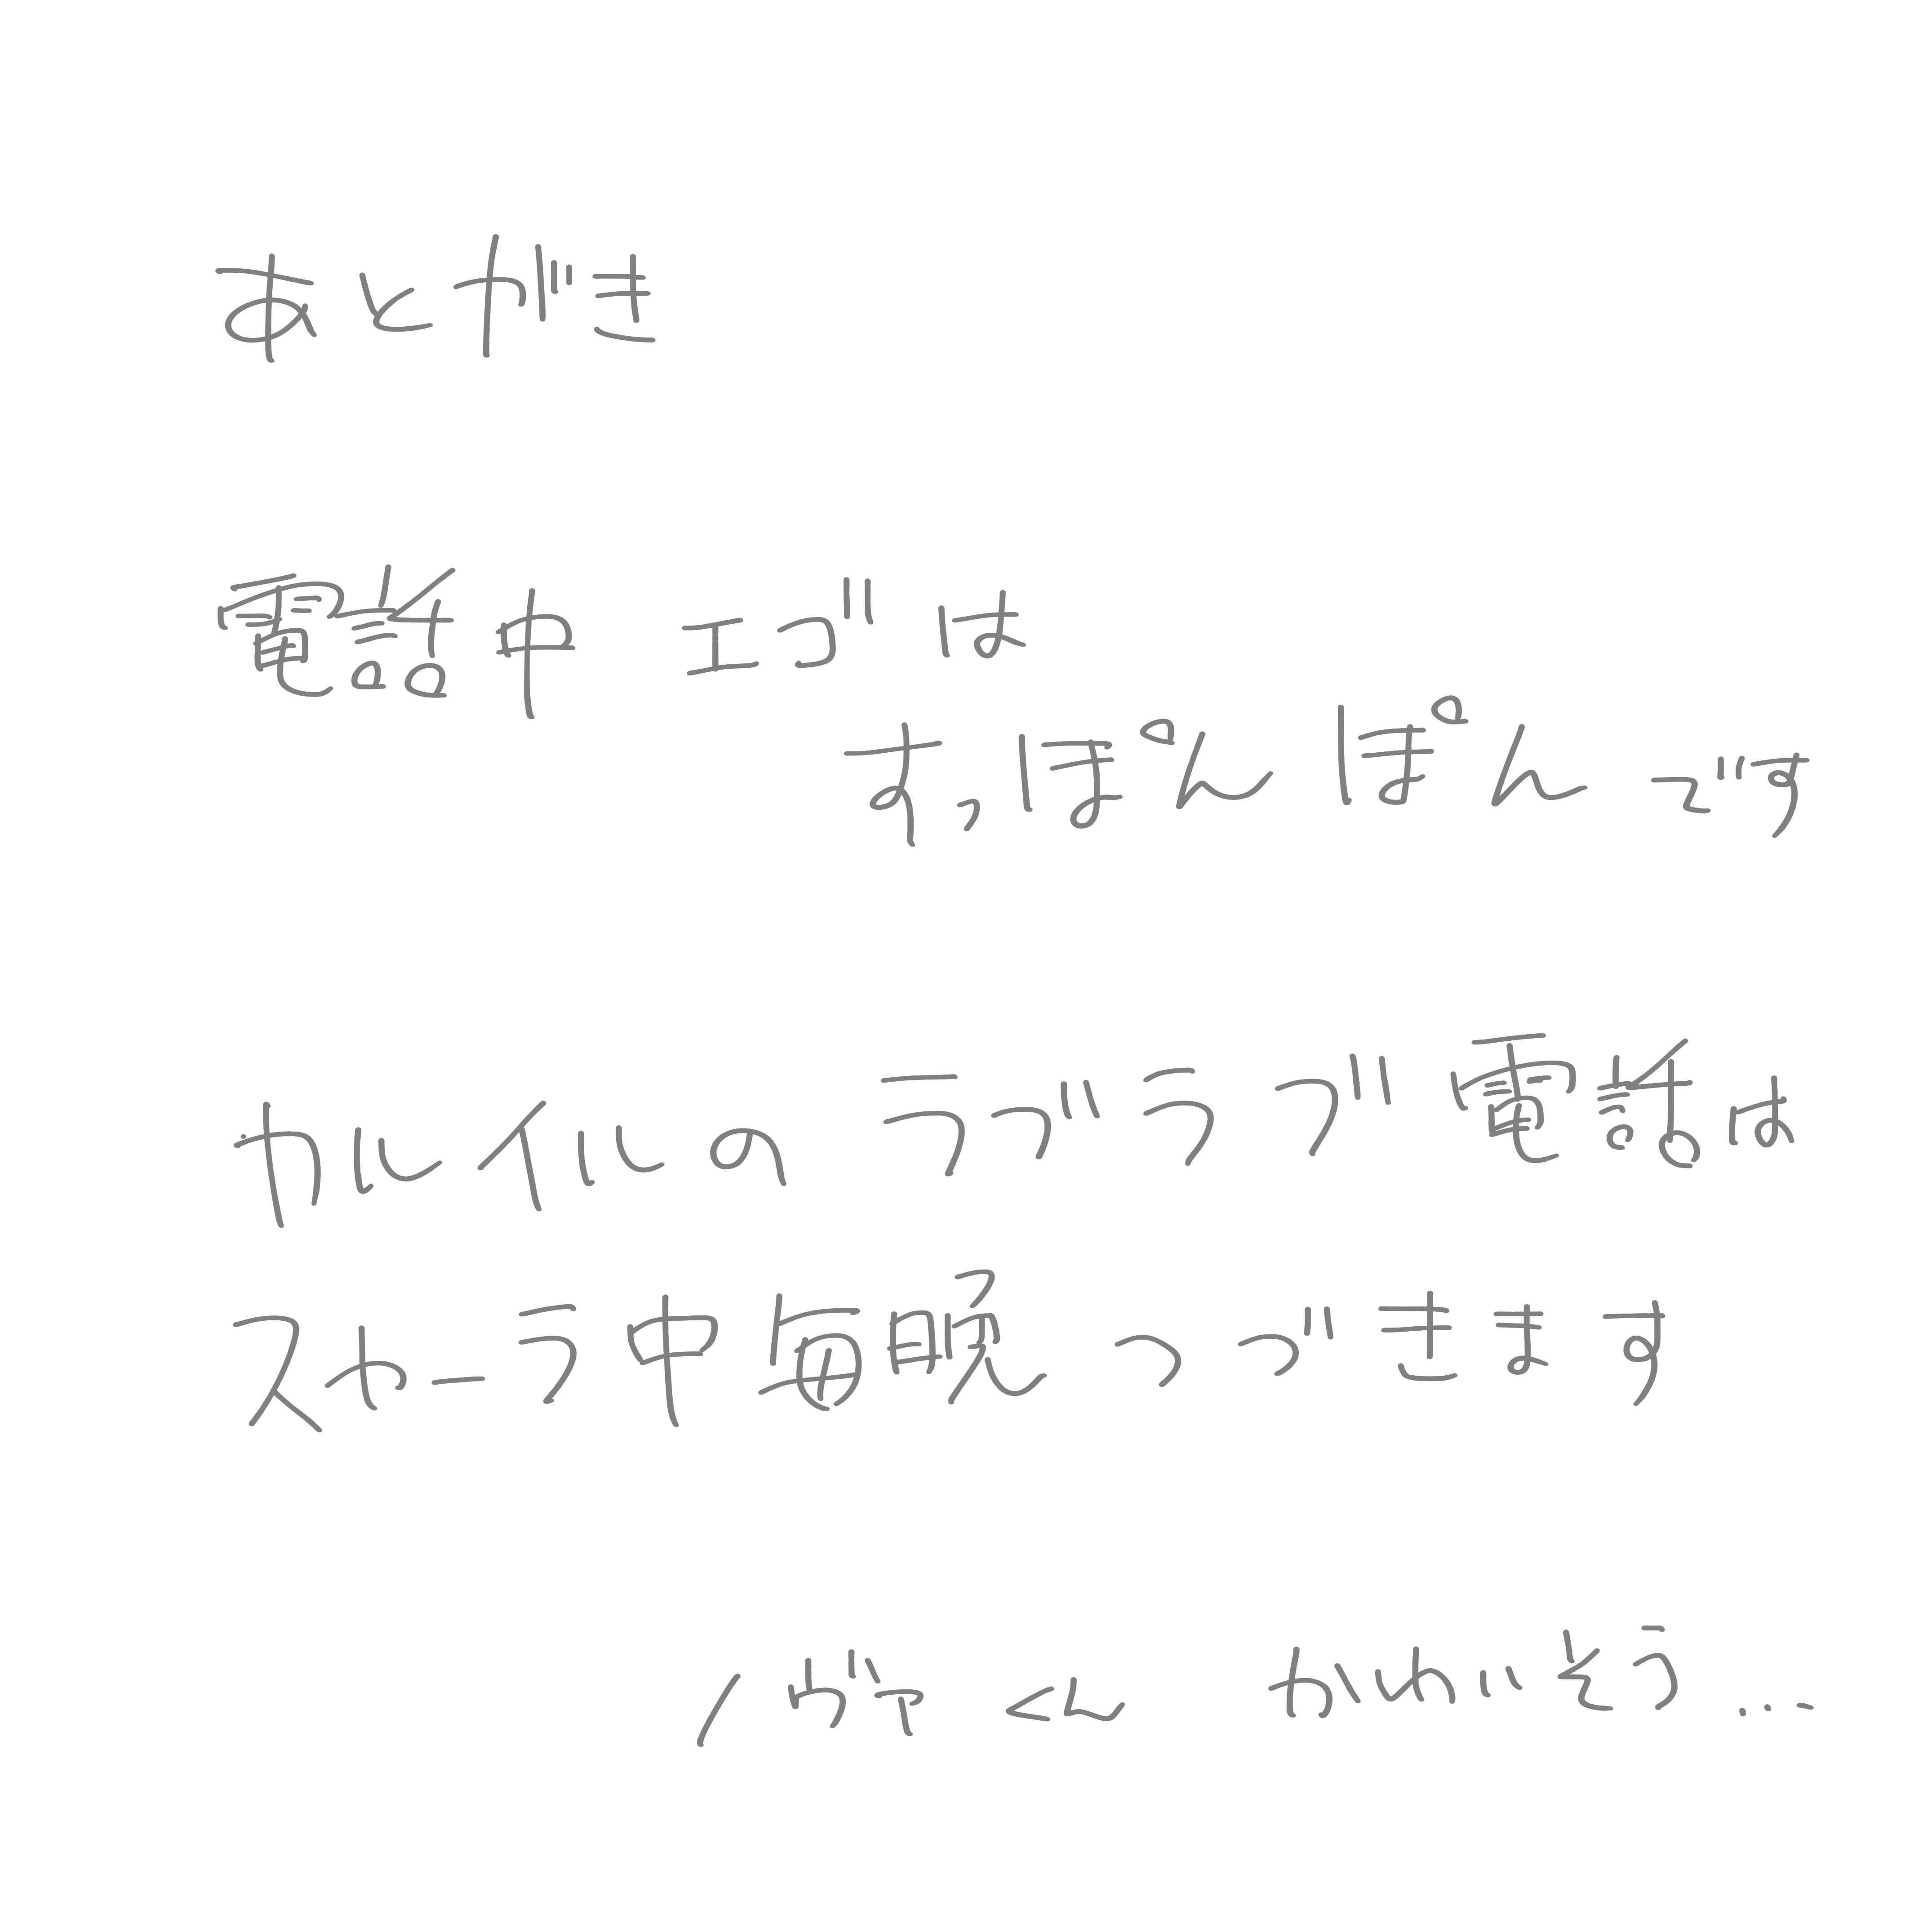 あとがき
電話中 エゴは
すっぽんぽんです
カルイルのラブラブ電話は
スヤーラ中毎晩つづきます
ノヴァくん かわいそう…